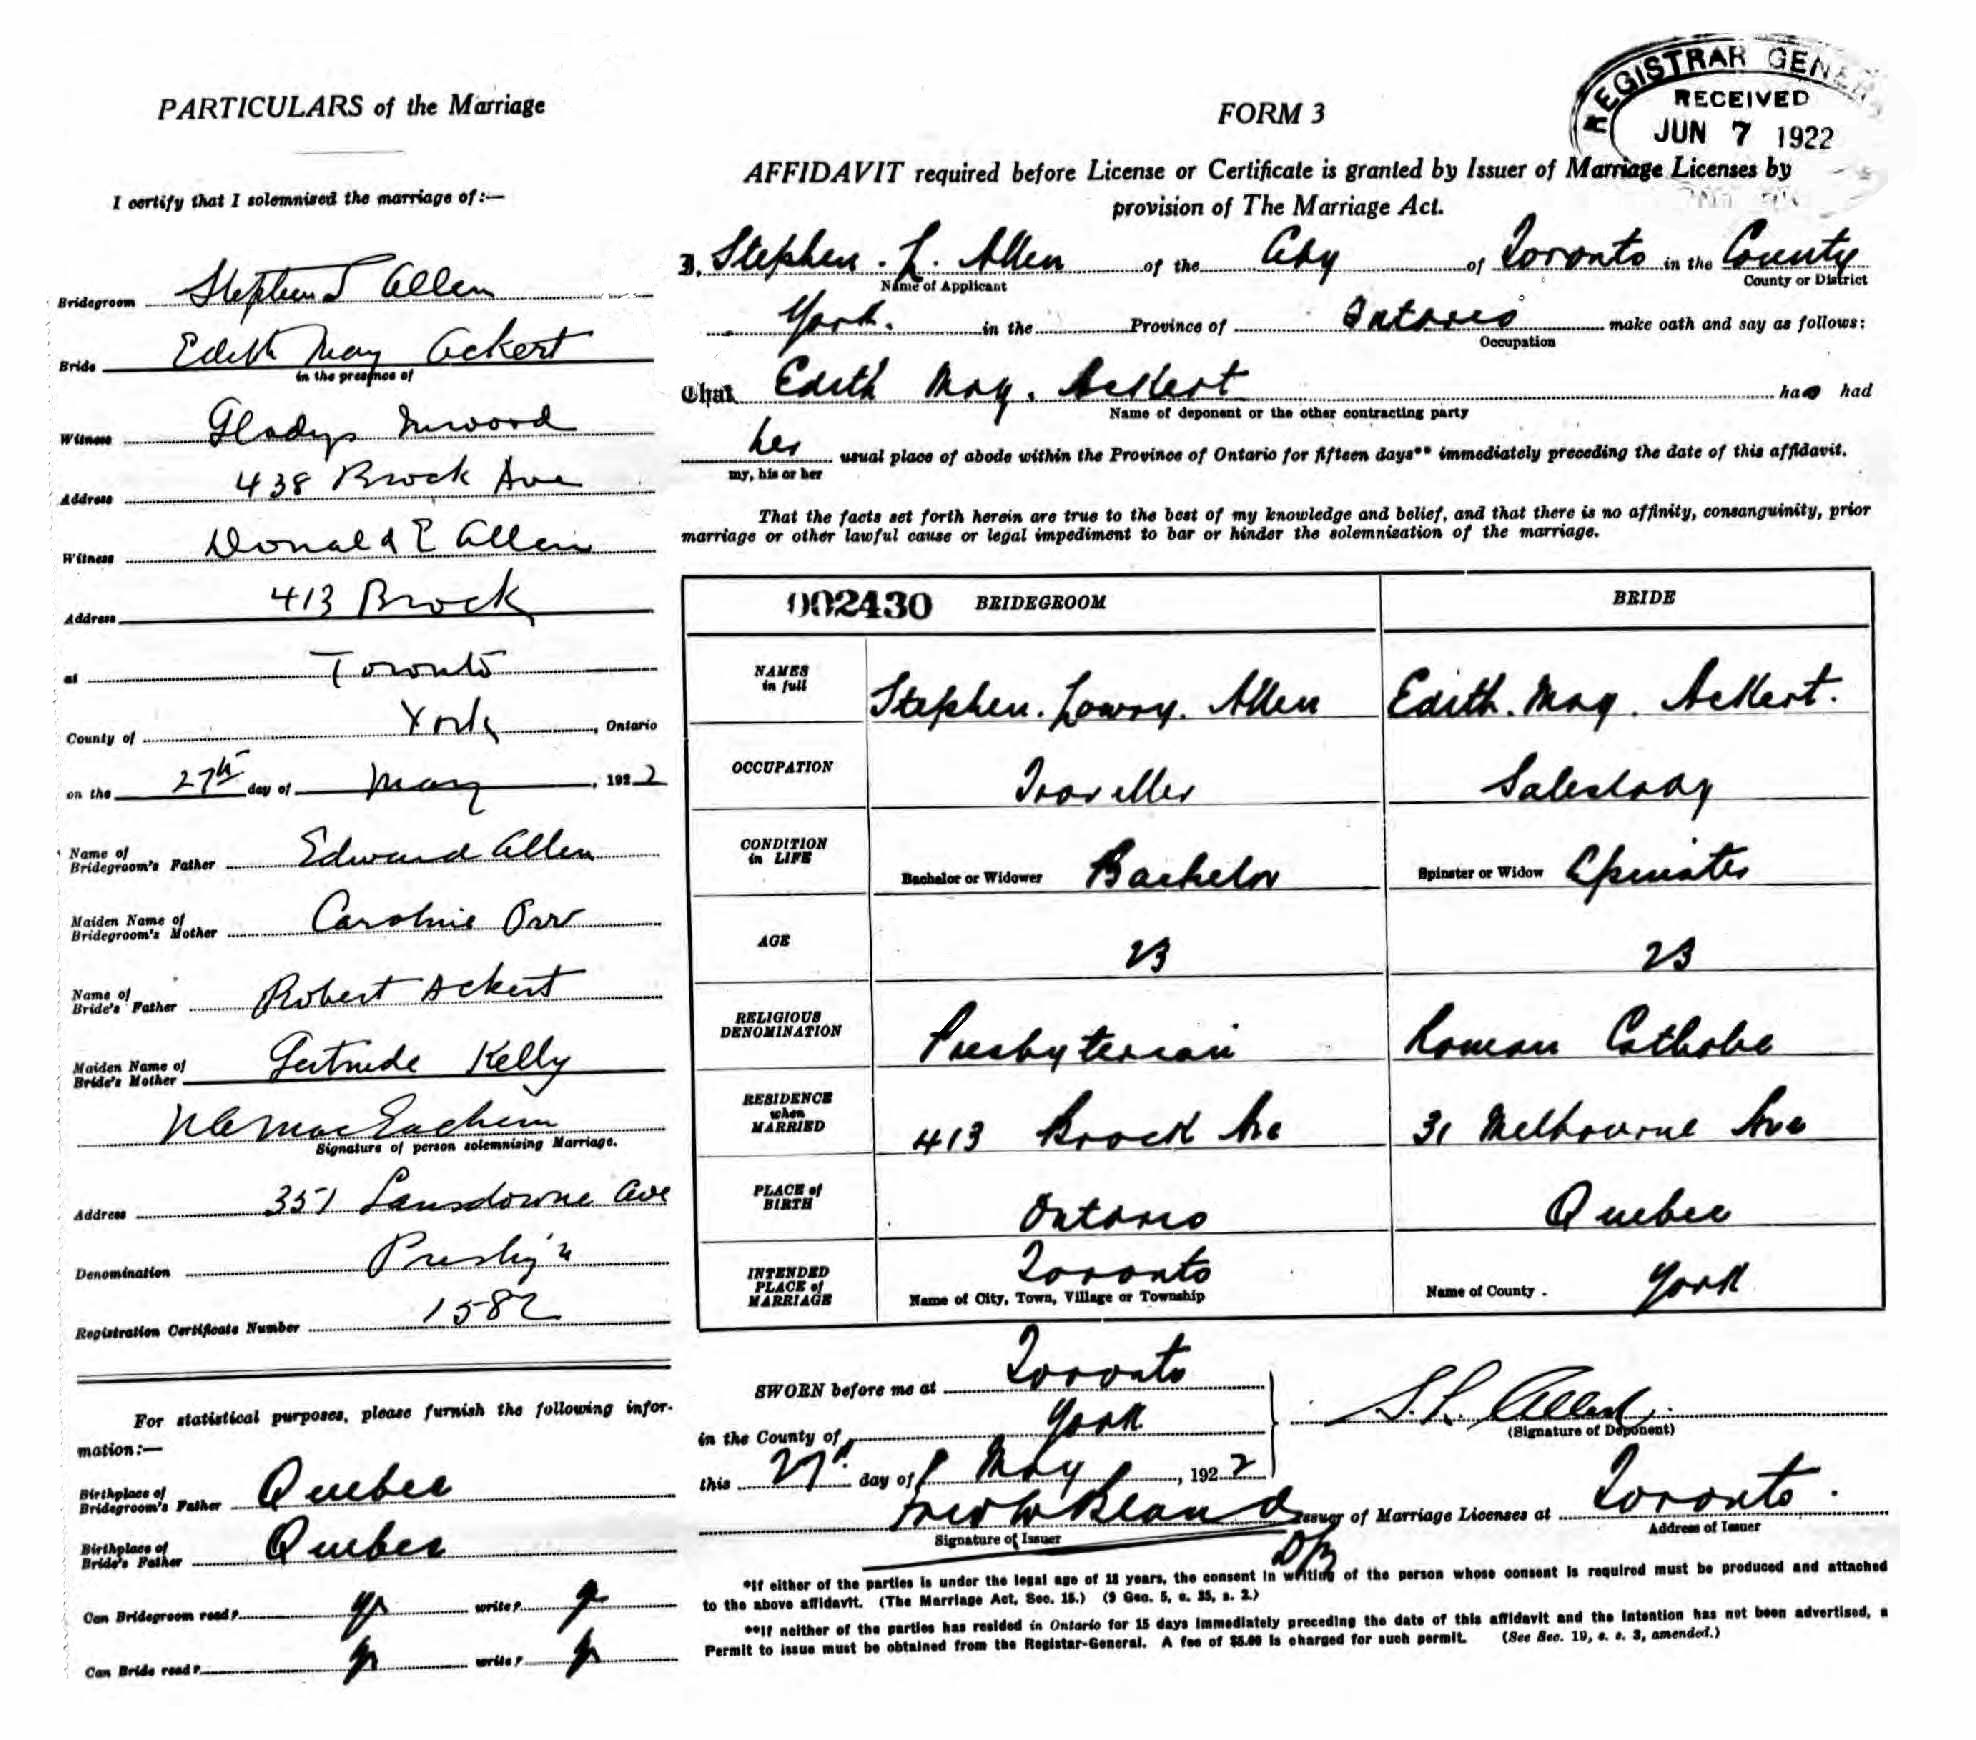 PARTICULARS of the Marriage
I certify that I solemnised the marriage of:—
Bridegroom Stephen L Allen
Bride Edith May Ackert
in the presence of
Witness Gladys Inwood
Address 438 Brock Ave
Witness Donald E Allen
Address 413 Brock
at Toronto
County of York, Ontario
on the 27th day of May, 1922
Name of
Bridegroom's Father Edward Allen
Maiden Name of
Bridegroom's Mother Caroline Orr
Name of
Bride's Father Robert Ackert
Maiden Name of
Bride's Mother Gertrude Kelly
MacEachern
Signature of person solemnizing Marriage.
Address 357 Lansdowne Ave
Denomination Presby'n
Registration Certificate Number 1582
For statistical purposes, please furnish the following infor-
mation:—
Birthplace of
Bridegroom's Father Quebec
Birthplace of
Bride's Father Quebec
Can Bridegroom read? write?
Can Bride read? write?
REGISTRAR GENERAL
RECEIVED
JUN 7 1922
FORM 3
AFFIDAVIT required before License or Certificate is granted by Issuer of Marriage Licenses by
provision of The Marriage Act.
I, Stephen. L. Allen of the City of Toronto in the County
Name of Applicant
County or District
York. in the Province of Ontario make oath and say as follows:
Occupation
That Edith May. Ackert has had
Name of deponent or the other contracting party
her usual place of abode within the Province of Ontario for fifteen days** immediately preceding the date of this affidavit.
my, his or her
That the facts set forth herein are true to the best of my knowledge and belief, and that there is no affinity, consanguinity, prior
marriage or other lawful cause or legal impediment to bar or hinder the solemnization of the marriage.
002430 BRIDEGROOM BRIDE
NAMES
in full
Stephen. Lowry. Allen Edith. May. Ackert.
OCCUPATION Traveller Saleslady
CONDITION
in LIFE
Bachelor or Widower Bachelor Spinster or Widow Spinster
AGE 23 23
RELIGIOUS
DENOMINATION
Presbyterian Roman Catholic
RESIDENCE
when
MARRIED
413 Brock Ave 31 Melbourne Ave
PLACE of
BIRTH
Ontario Quebec
INTENDED
PLACE of
MARRIAGE
Toronto
Name of City, Town, Village or Township
Name of County York
SWORN before me at Toronto
in the County of York
this 27th day of May, 1922
S. L. Allen
(Signature of Deponent)
Issuer of Marriage Licenses at Toronto.
Signature of Issuer
Address of Issuer
*If either of the parties is under the legal age of 18 years, the consent in writing of the person whose consent is required must be produced and attached
to the above affidavit. (The Marriage Act, Sec. 15.) (9 Geo. 5, c. 35, s. 2.)
**If neither of the parties has resided in Ontario for 15 days immediately preceding the date of this affidavit and the intention has not been advertised, a
Permit to issue must be obtained from the Registar-General. A fee of $5.00 is charged for such permit. (See Sec. 19, s. s. 3, amended.)